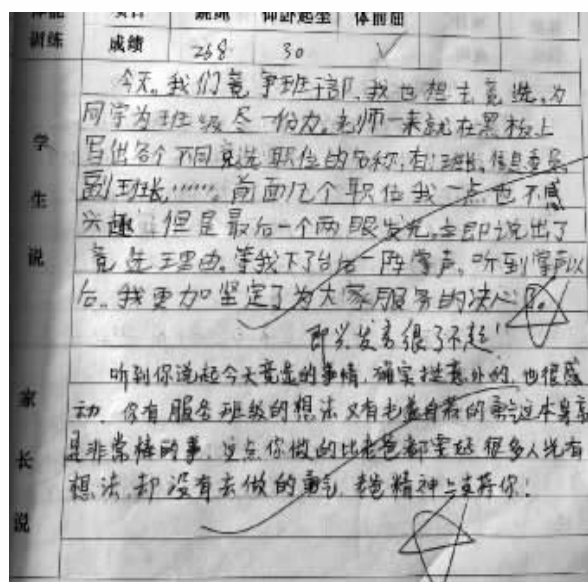 体能 项目 跳绳 仰卧起坐 体前屈
训练 成绩 268 30 ✓
学生说
今天,我们竞争班干部,我也想去竞选,为
同学为班级尽一份力。老师一来就在黑板上
写出各个不同竞选职位的名称,有:班长、信息委员
副班长……。前面几个职位我一点也不感
兴趣,但是最后一个两眼发光,立即说出了
竞选理由。等我下了台后一阵掌声,听到掌声以
后,我更加坚定了为大家服务的决心了。
即兴发言很了不起!
家长说
听到你说起今天竞选的事情,确实挺意外的,也很感
动,你有服务班级的想法又有毛遂自荐的勇气这本身就
是非常棒的事,这点你做的比老爸都要好 很多人光有
想法,却没有去做的勇气,老爸精神上支持你!